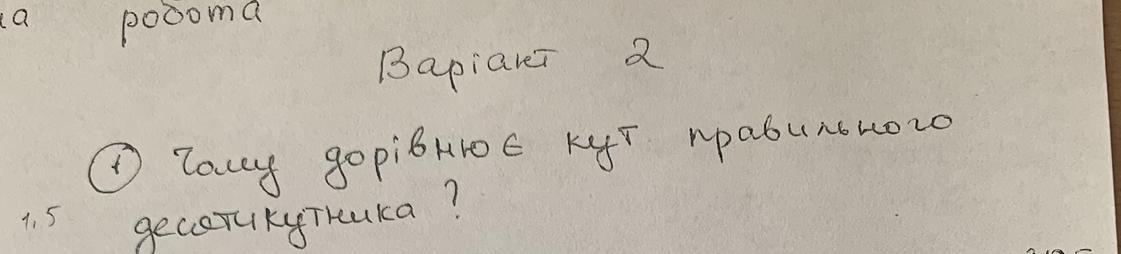 робота
Варіант 2
① Чому дорівнює кут правильного
1,5 десятикутника?